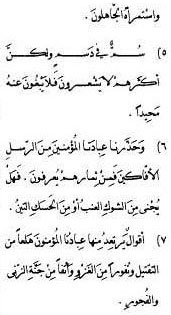 واستمرأهُ الجاهلونَ.
٥) سُمٌّ في دَسَمٍ ولكنَّ
أكثرَهُم لا يشعرونَ فلا يبغونَ عنهُ
محيداً.
٦) وحذّرنا عبادَنا المؤمنينَ منَ الرسلِ
الأفّاكينَ فمِن ثمارِهم يُعرفونَ. فهل
يُجنى مِنَ الشوكِ العنبُ أو مِنَ الحسكِ التينُ.
٧) أقوالٌ يرتعدُ منها عبادُنا المؤمنونَ هلعاً من
التقتيلِ ونفوراً من الغزوِ وأنفاً من جنّةِ الزنى
والفجورِ.